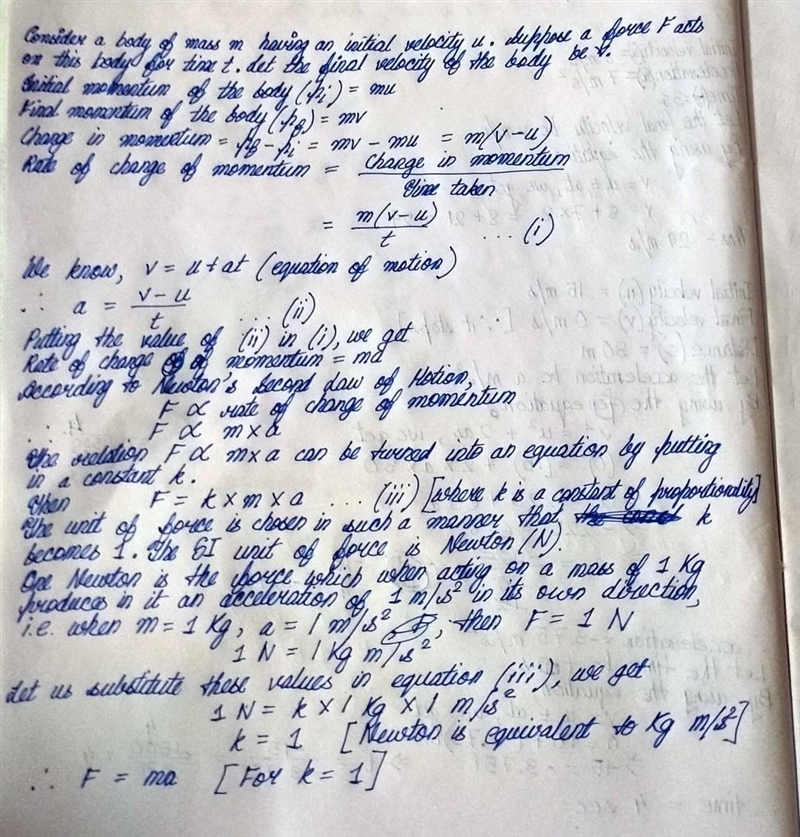 Consider a body of mass m having an initial velocity u. Suppose a force F acts
on this body for time t. Let the final velocity of the body be v.
Initial momentum of the body (pᵢ) = mu
Final momentum of the body (p_f) = mv
Change in momentum = p_f - pᵢ = mv - mu = m(v-u)
Rate of change of momentum = Change in momentum
Time taken
= m(v-u)/t ... (i)
We know, v = u + at (equation of motion)
∴ a = (v-u)/t ... (ii)
Putting the value of (ii) in (i), we get
Rate of change of momentum = ma
According to Newton's Second Law of Motion,
F ∝ rate of change of momentum
∴ F ∝ m×a
The relation F ∝ m×a can be turned into an equation by putting
in a constant k.
Then F = k × m × a .... (iii) [where k is a constant of proportionality]
The unit of force is chosen in such a manner that k
becomes 1. The SI unit of force is Newton (N).
One Newton is the force which when acting on a mass of 1 Kg
produces in it an acceleration of 1 m/s² in its own direction,
i.e. when m = 1 Kg, a = 1 m/s², then F = 1 N
1 N = 1 Kg m/s²
Let us substitute these values in equation (iii), we get
1 N = k × 1 Kg × 1 m/s²
k = 1 [Newton is equivalent to Kg m/s²]
∴ F = ma [For k = 1]